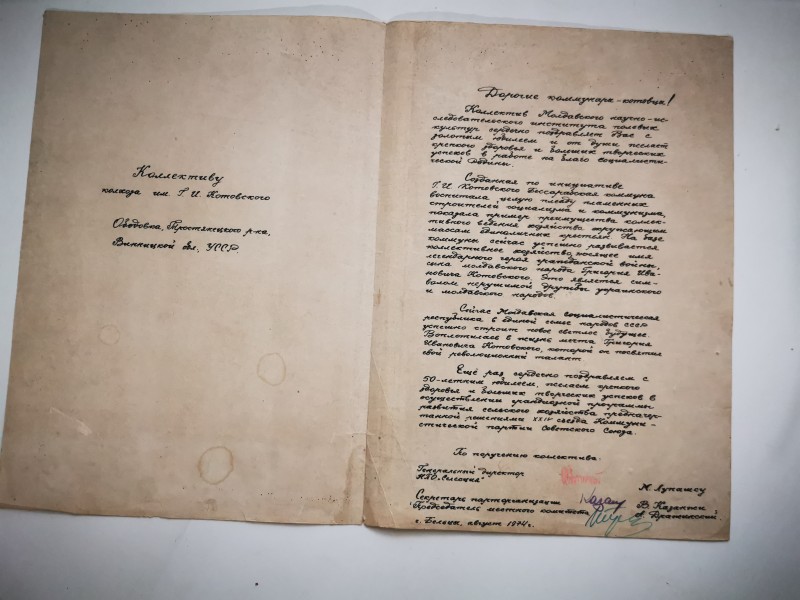 Коллективу
колхоза им. Г. И. Котовского
Ободовка, Тростянецкого р-на,
Винницкой обл., УССР
Дорогие коммунары-котовцы!
Коллектив Молдавского научно-ис-
следовательского института полевых
культур сердечно поздравляет Вас с
золотым юбилеем и от души желает
крепкого здоровья и больших творческих
успехов в работе на благо социалисти-
ческой Родины.
Созданная по инициативе
Г. И. Котовского Бессарабская коммуна
воспитала целую плеяду пламенных
строителей социализма и коммунизма,
показала пример преимущества коллек-
тивного ведения хозяйства окружающим
массам единоличных крестьян. На базе
коммуны сейчас успешно развивается
коллективное хозяйство, носящее имя
легендарного героя гражданской войны,
сына молдавского народа Григория Ива-
новича Котовского. Это является сим-
волом нерушимой дружбы украинского
и молдавского народов.
Сейчас Молдавская социалистическая
республика в единой семье народов СССР
успешно строит новое светлое будущее.
Воплотилась в жизнь мечта Григория
Ивановича Котовского, которой он посвятил
свой революционный талант.
Ещё раз сердечно поздравляем с
50-летним юбилеем, желаем крепкого
здоровья и больших творческих успехов в
осуществлении грандиозной программы
развития сельского хозяйства предначер-
танной решениями XXIV съезда Коммуни-
стической партии Советского Союза.
По поручению коллектива:
Генеральный директор
НПО "Селекция" М. Лупашку
Секретарь парторганизации В. Казанжи
Председатель местного комитета
г. Бельцы, август 1974 г.